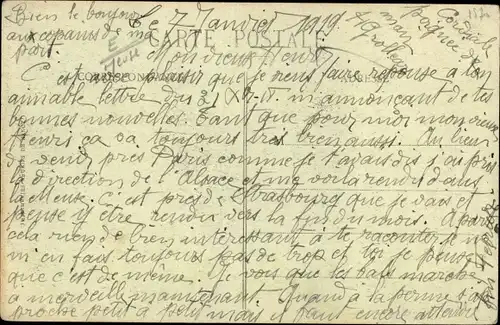 Bien le bonjour
aux copains de ma
part.
Le 7 Janvier 1919
Cordiale
Poignée de
main
CARTE POSTALE
Meuse
Mon vieux Henri
C'est avec plaisir que je viens faire réponse à ton
aimable lettre du XII m'annonçant de tes
bonnes nouvelles. Tant que pour moi mon vieux
Henri ça va toujours très bien aussi. Au lieu
de venir près Paris comme je t'avais dis j'ai pris
la direction de l'Alsace et me voila rendu dans
la Meuse. C'est près de Strasbourg que je vais et
pense y être rendu vers la fin du mois. A part
cela rien de bien intéressant à te raconter je
m'en fais toujours pas de trop et toi je pense
que c'est de même. Je vois que les bals marche
à merveille maintenant. Quand à la perme s'a
proche petit à petit mais il faut encore attendre